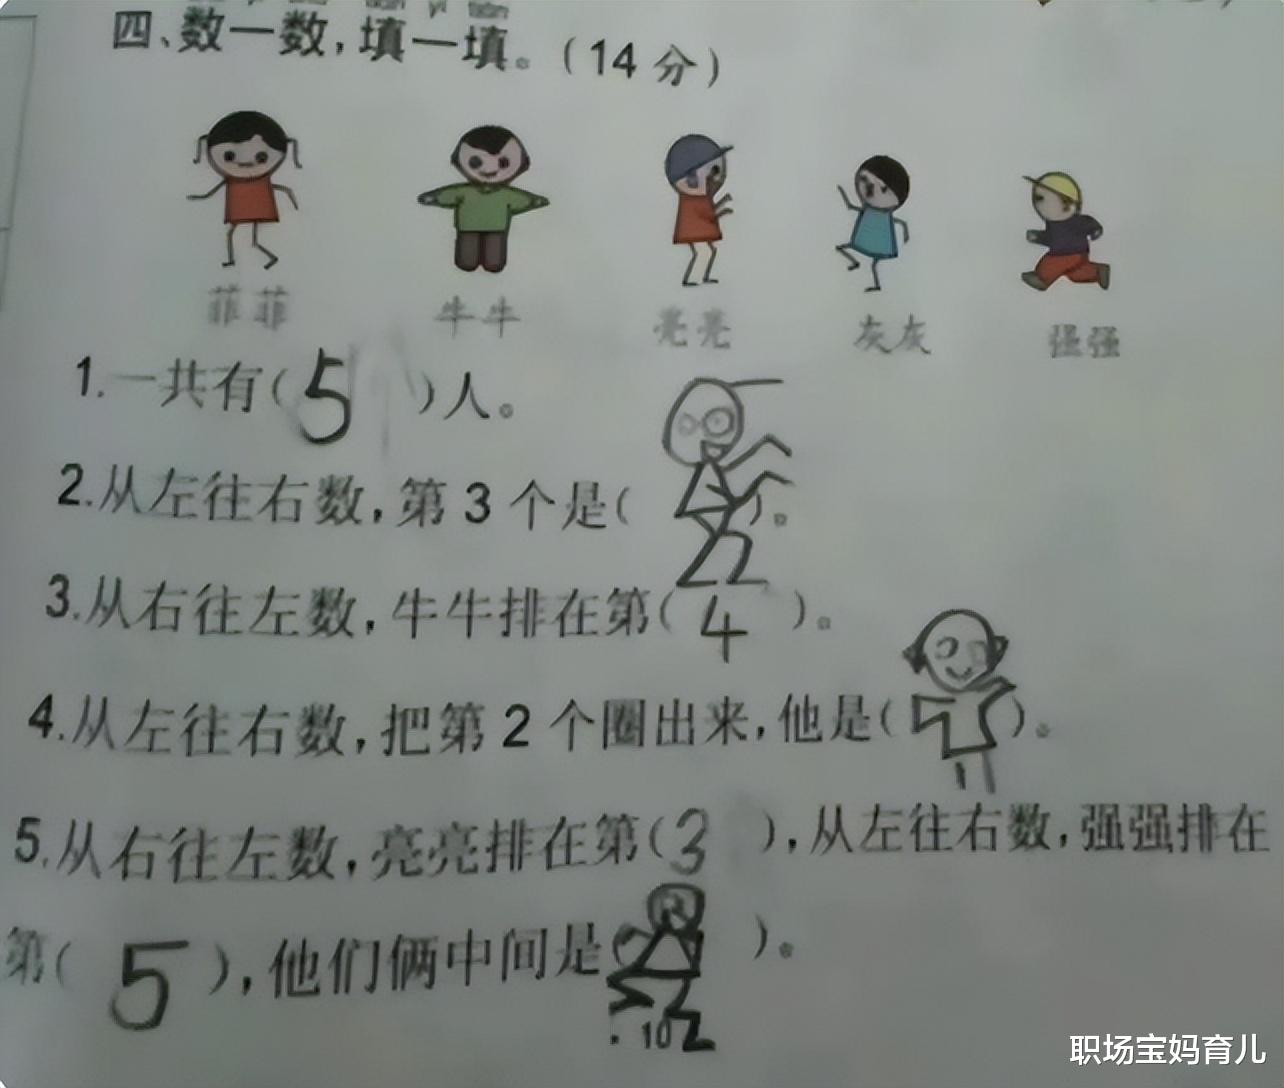 四、数一数，填一填。（14 分）
菲菲 牛牛 亮亮 灰灰 强强
1.一共有（5）人。
2.从左往右数，第 3 个是（ ）。
3.从右往左数，牛牛排在第（4）。
4.从左往右数，把第 2 个圈出来，他是（ ）。
5.从右往左数，亮亮排在第（3），从左往右数，强强排在
第（5），他们俩中间是（ ）。
· 10
职场宝妈育儿